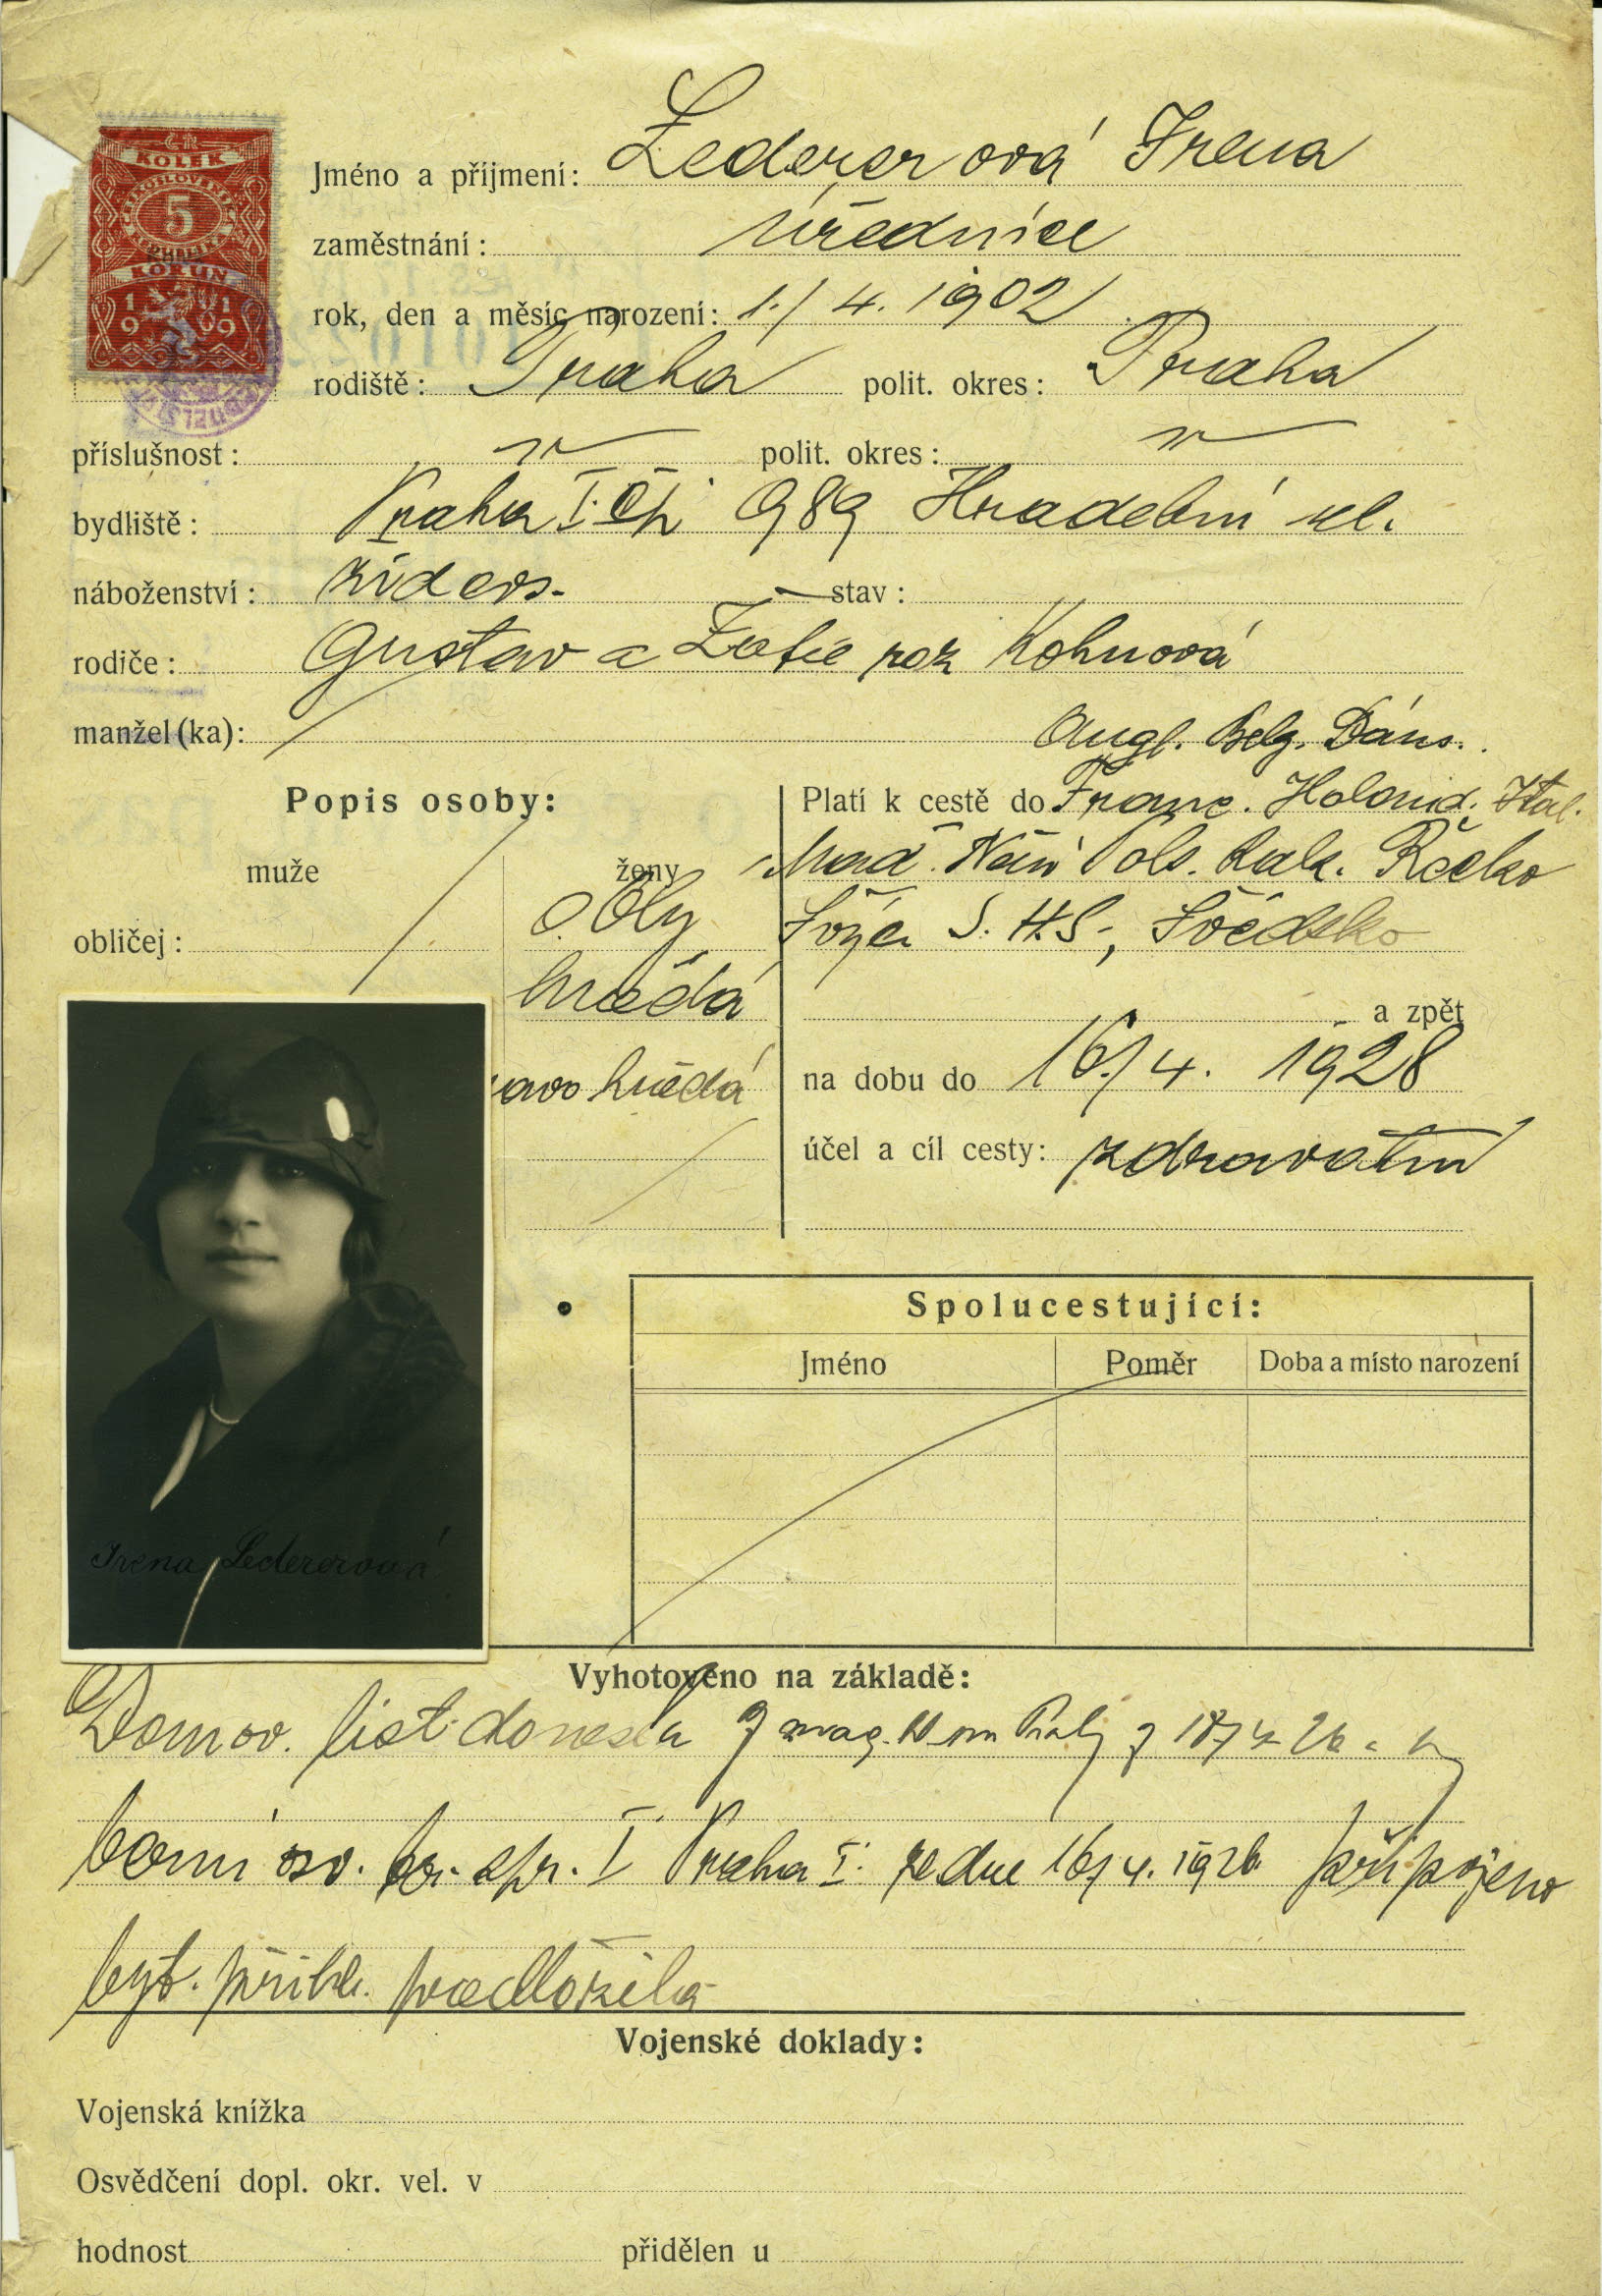 KOLEK
5
KORUN
1919
Jméno a příjmení: Ledererová Irena
zaměstnání: úřednice
rok, den a měsíc narození: 1./4. 1902
rodiště: Praha polit. okres: Praha
příslušnost: polit. okres:
bydliště: Praha I. čp. 989 Hradební ul.
náboženství: židovs. stav:
rodiče: Gustav a Žofie roz Kohnová
manžel(ka):
Angl. Belg. Dáns.
Popis osoby:
Platí k cestě do Franc. Holand. Ital.
muže ženy
Maď. Něm Pols. Rak. Řecko
obličej: oblý
Švýca S.H.S., Švédsko
hnědá
a zpět
na dobu do 16./4. 1928
hnědá
účel a cíl cesty: zdravotní
Spolucestující:
Jméno Poměr Doba a místo narození
Irena Ledererová
Vyhotoveno na základě:
Domov. list donesla
osv. spr. I Praha I. ze dne 16/4. 1926 připojeno
byt. přihl. předložila
Vojenské doklady:
Vojenská knížka
Osvědčení dopl. okr. vel. v
hodnost přidělen u